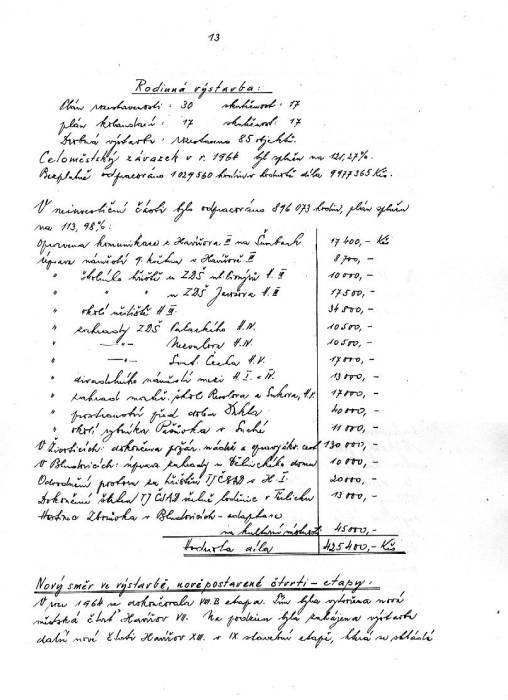 13
Rodinná výstavba:
Plán rozestavěnosti: 30 skutečnost: 17
plán kolaudací: 17 skutečnost: 17
Drobná výstavba: rozestavěno 85 objektů.
Celoměstský závazek v r. 1964 byl splněn na 121,27%.
Bezplatně odpracováno 1029560 hodin v hodnotě díla 9977365 Kčs.
V neinvestiční části bylo odpracováno 896 073 hodin, plán splněn
na 113,98%:
Opravena komunikace z Havířova II na Šumbark 17 400,- Kčs
úprava náměstí 9. května v Havířově II 8 700,-
" školního hřiště u ZDŠ H. II 10 000,-
" " u ZDŠ Jarošova H. II 17 500,-
" okolí H III. 34 800,-
" zahrady ZDŠ Palackého H. IV. 10 500,-
" —"— H. IV. 10 500,-
" —"— Svat. Čecha H. V. 17 000,-
" divadelního náměstí mezi H. I. a IV. 13 000,-
" zahrad mateř. škol a H. V. 17 000,-
" prostranství před dolem Dukla 40 000,-
" okolí rybníka v Suché 11 000,-
V Životicích: dokončena požár. nádrž a opravy cest 130 000,-
V Bludovicích: úprava zahrady u Dělnického domu 10 000,-
Odvodnění prostoru za hřištěm TJ ČSAD v H I. 20000,-
Dokončení TJ ČSAD 13 000,-
Hostinec v Bludovicích - adaptace
na kulturní místnost 45000,-
Hodnota díla 425 400,- Kčs
Nový směr ve výstavbě, nově postavené čtvrti - etapy:
V roce 1964 se dokončovala VIII. B etapa. Tím byla vytvořena nová
městská čtvrť Havířov VII. Na podzim byla zahájena výstavba
další nové čtvrti Havířov XIII. v IX stavební etapě, která se skládá